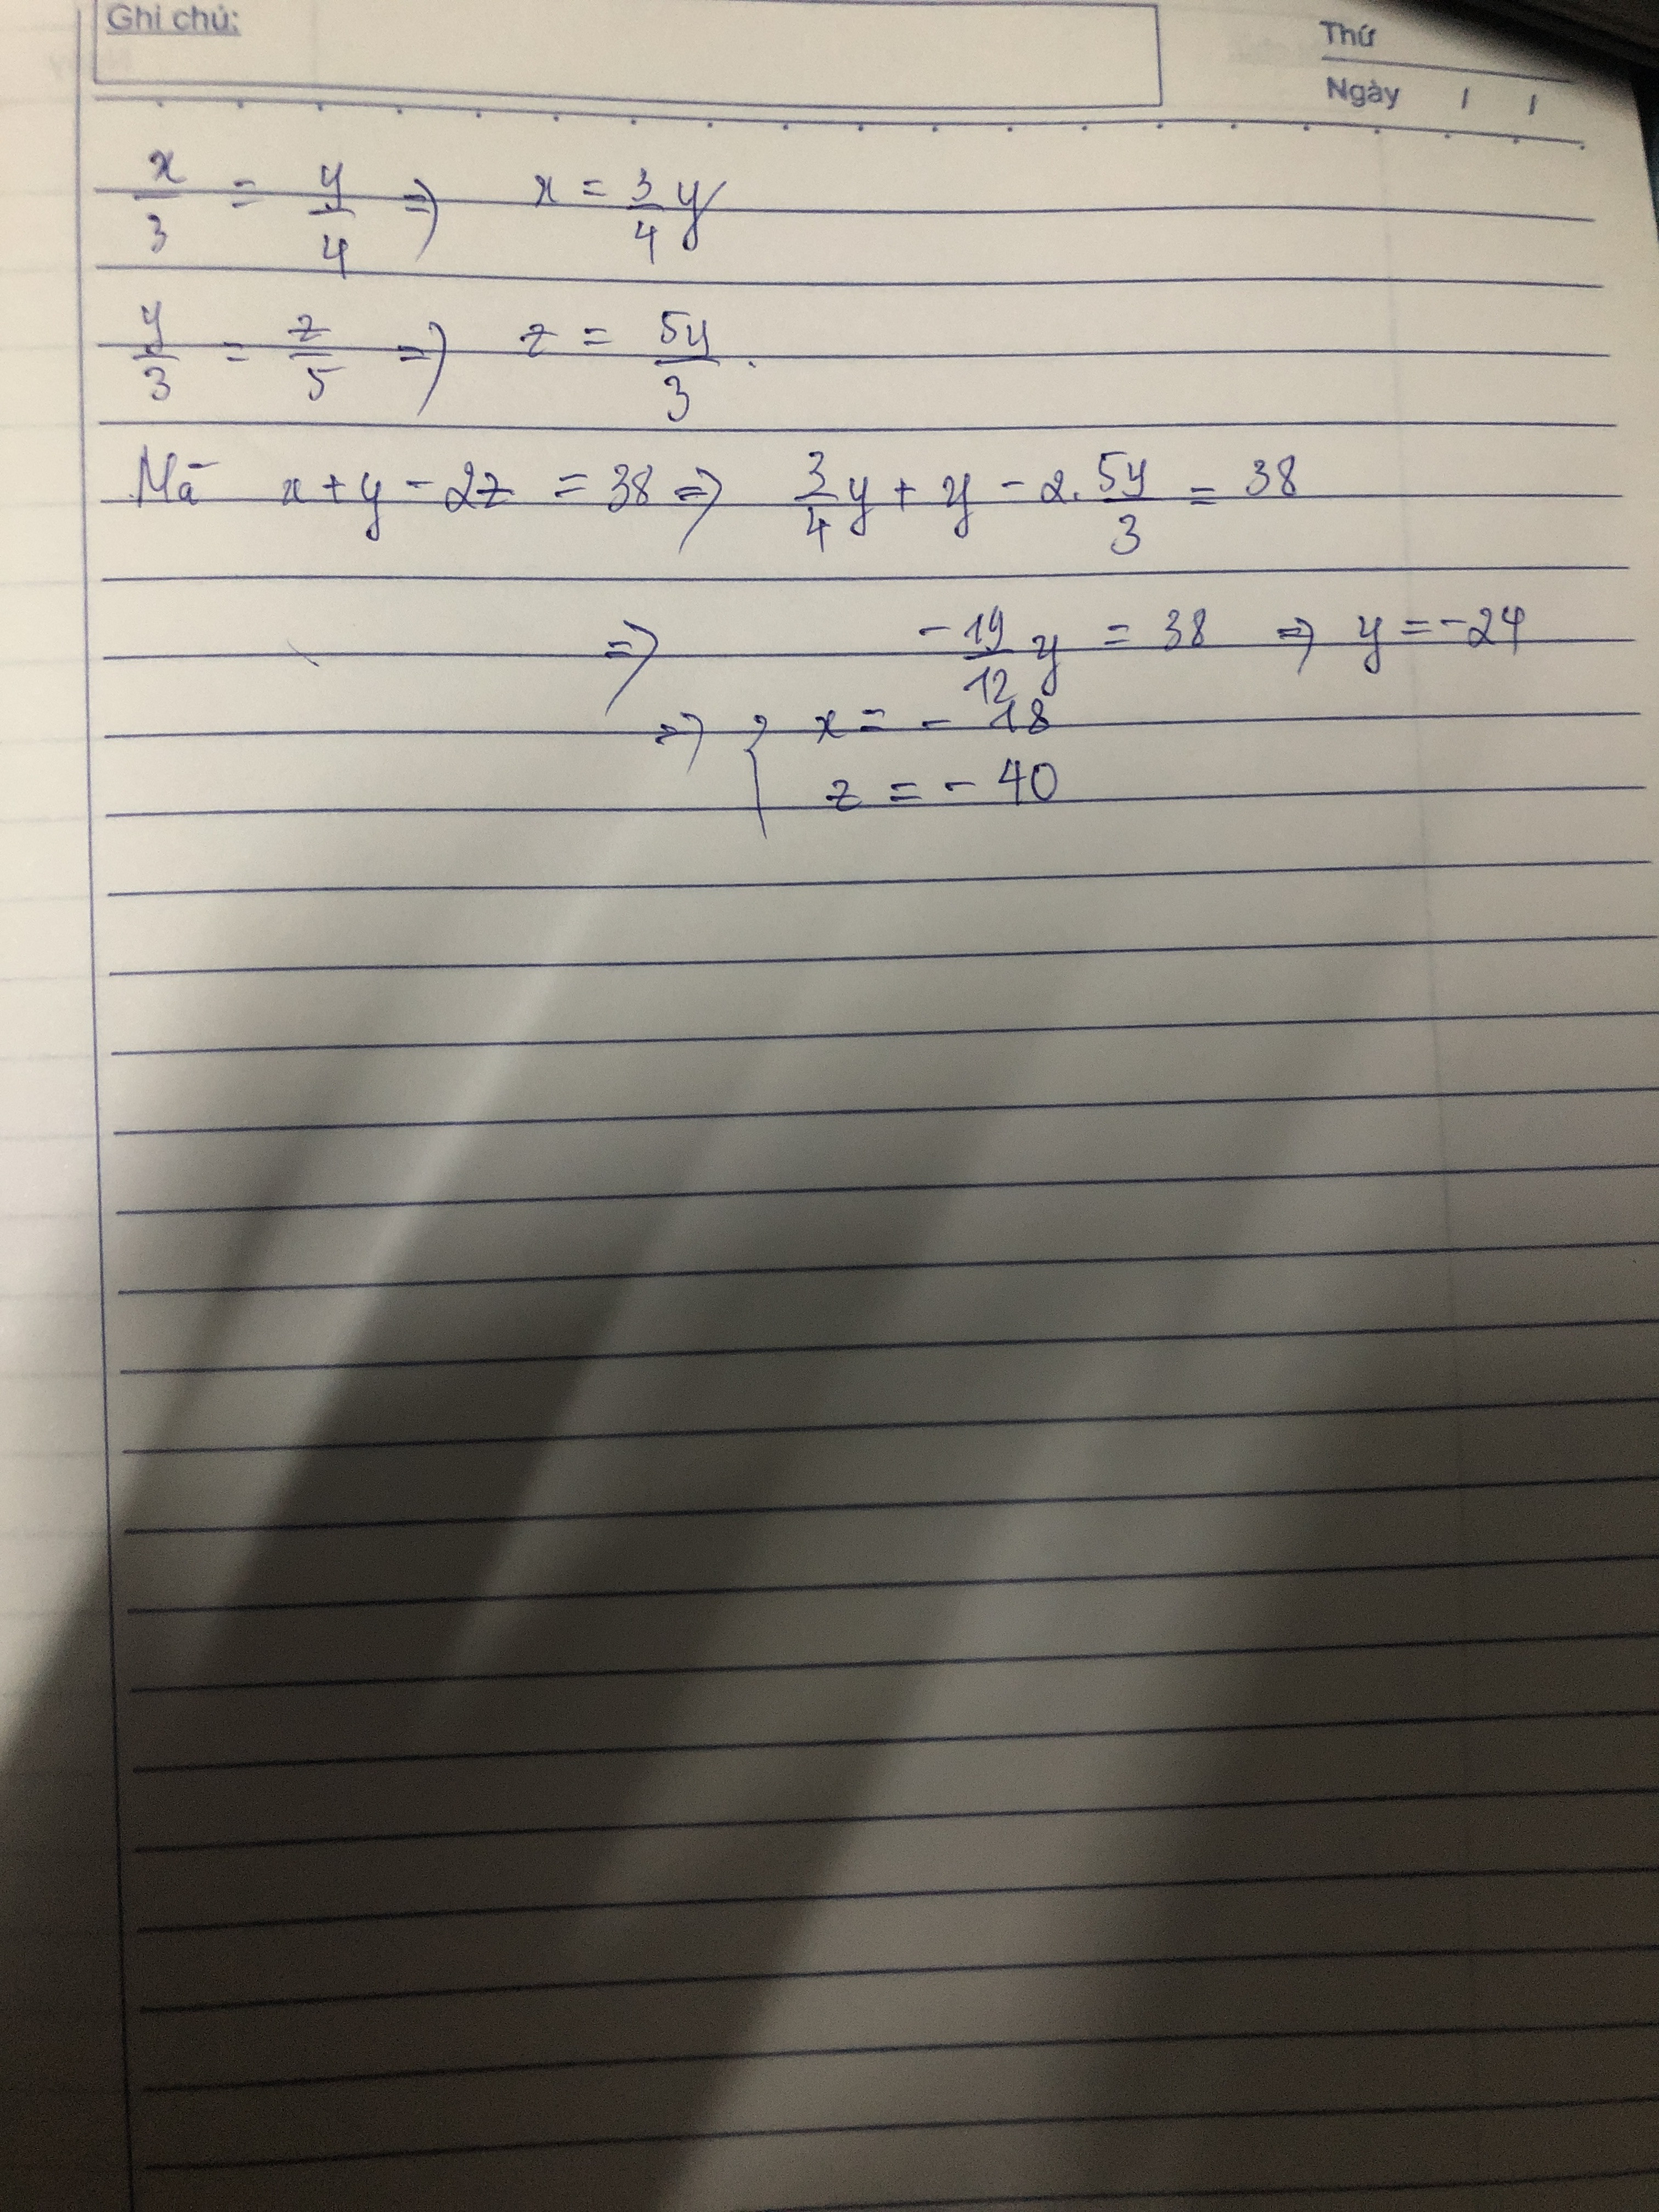 Ghi chú:
Thứ
Ngày / /
x/3 = y/4 => x = 3/4 y
y/3 = z/5 => z = 5y/3.
Mà x + y - 2z = 38 => 3/4 y + y - 2. 5y/3 = 38
=> -19/12 y = 38 => y = -24
=> { x = - 18
z = - 40